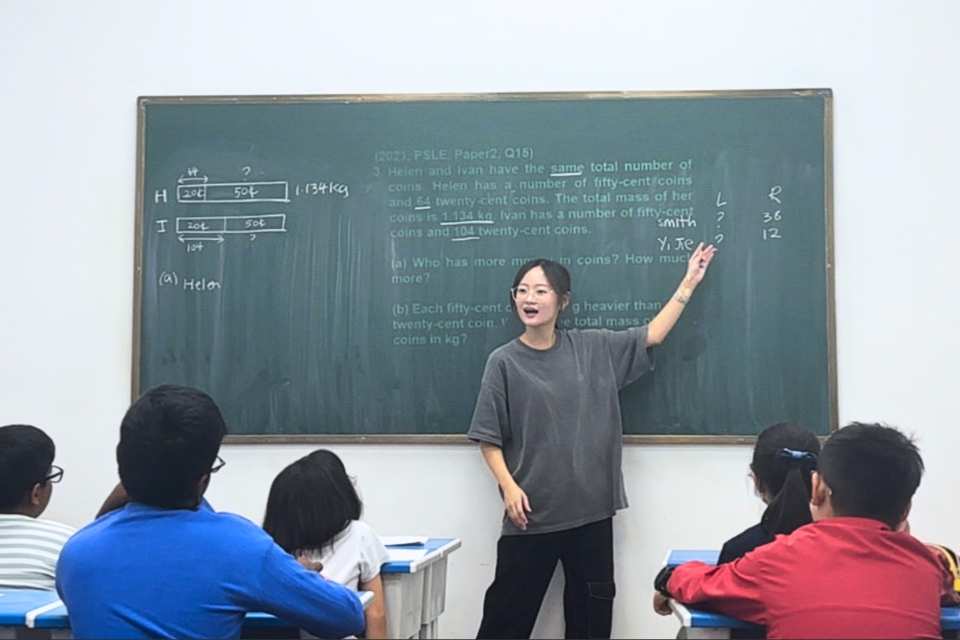 (2021, PSLE, Paper2, Q15)
3. Helen and Ivan have the same total number of
coins. Helen has a number of fifty-cent coins
and 64 twenty-cent coins. The total mass of her
coins is 1.134 kg. Ivan has a number of fifty-cent
coins and 104 twenty-cent coins.
(a) Who has more in coins? How much
more?
(b) Each fifty-cent g heavier than
twenty-cent coin. total mass
coins in kg?
?
H 20¢ 50¢ 1.134kg
I 20¢ 50¢
104 ?
(a) Helen
L R
smith ? 36
Yi ? 12